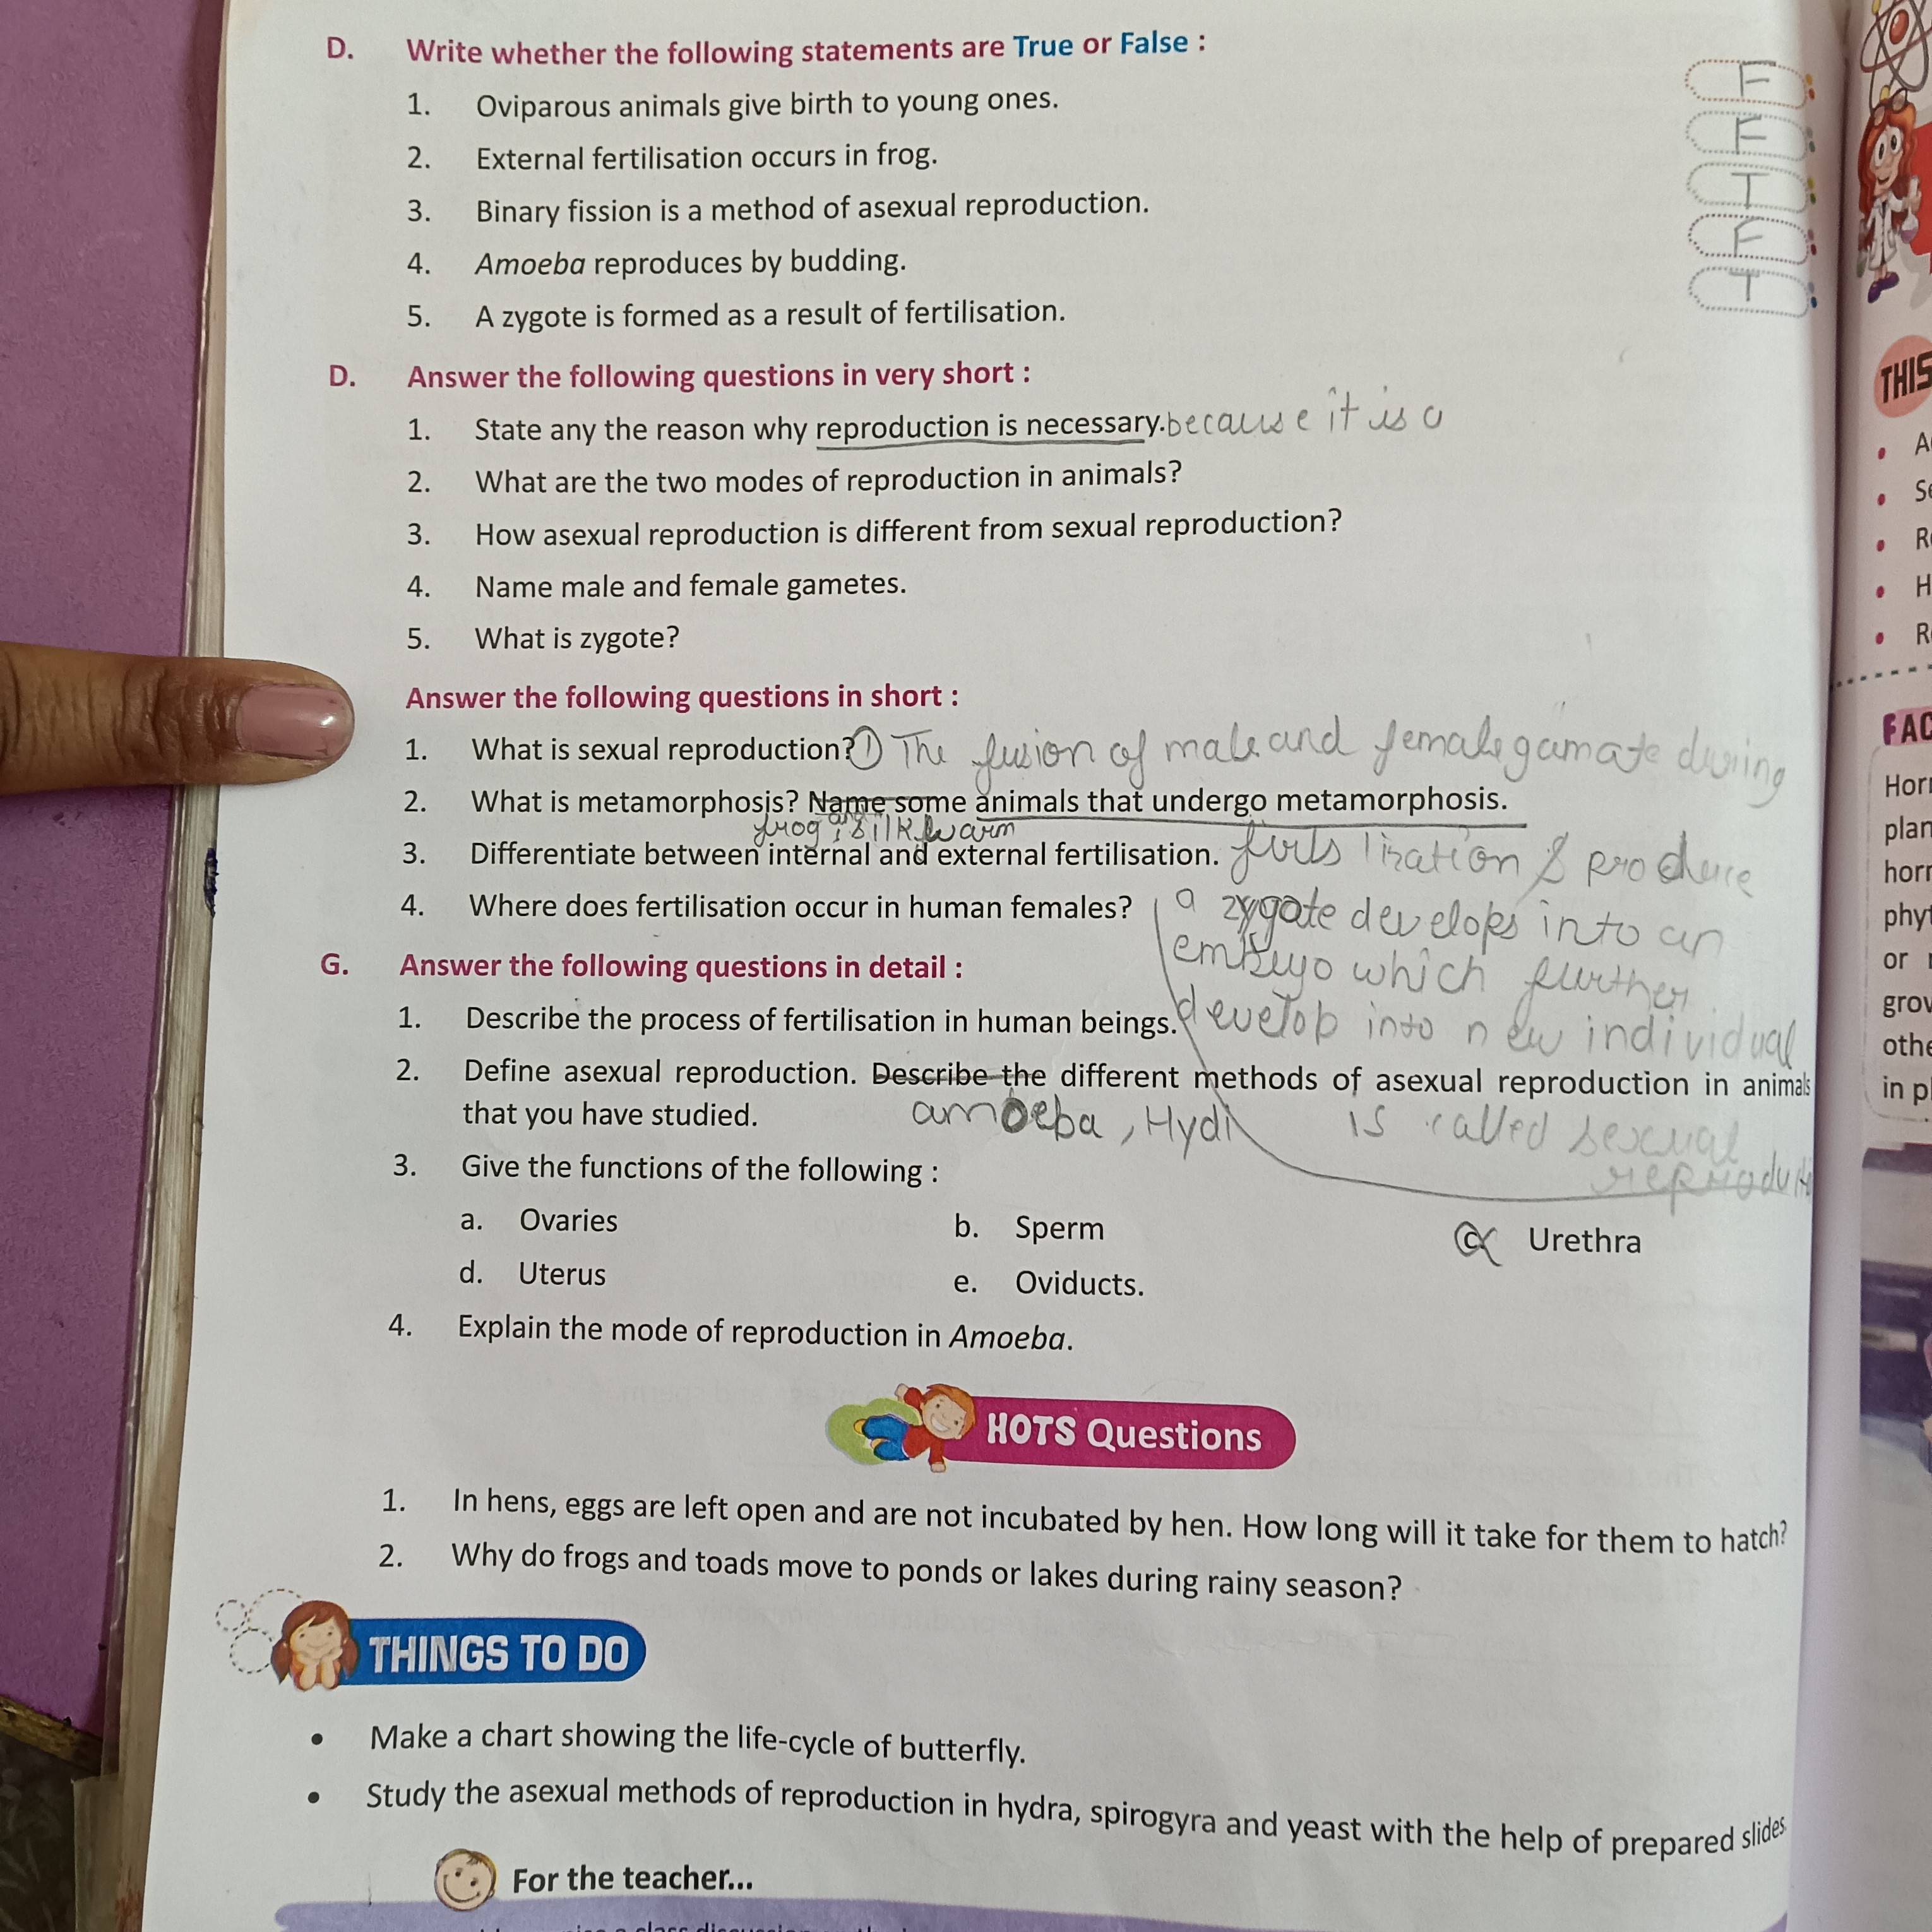 D. Write whether the following statements are True or False :
1. Oviparous animals give birth to young ones. F
2. External fertilisation occurs in frog. F
3. Binary fission is a method of asexual reproduction. T
4. Amoeba reproduces by budding. F
5. A zygote is formed as a result of fertilisation. T
D. Answer the following questions in very short :
1. State any the reason why reproduction is necessary. because it is a
2. What are the two modes of reproduction in animals?
3. How asexual reproduction is different from sexual reproduction?
4. Name male and female gametes.
5. What is zygote?
Answer the following questions in short :
1. What is sexual reproduction? ① The fusion of male and female gamate during
2. What is metamorphosis? Name some animals that undergo metamorphosis.
frog and silkwarm
3. Differentiate between internal and external fertilisation. produce
4. Where does fertilisation occur in human females? a zygate develops into an
embryo which further
G. Answer the following questions in detail :
1. Describe the process of fertilisation in human beings. develop into new individual
2. Define asexual reproduction. Describe the different methods of asexual reproduction in animals
that you have studied. amoeba, is called sexual
3. Give the functions of the following :
a. Ovaries b. Sperm c. Urethra
d. Uterus e. Oviducts.
4. Explain the mode of reproduction in Amoeba.
HOTS Questions
1. In hens, eggs are left open and are not incubated by hen. How long will it take for them to hatch?
2. Why do frogs and toads move to ponds or lakes during rainy season?
THINGS TO DO
• Make a chart showing the life-cycle of butterfly.
• Study the asexual methods of reproduction in hydra, spirogyra and yeast with the help of prepared slides.
For the teacher...
THIS